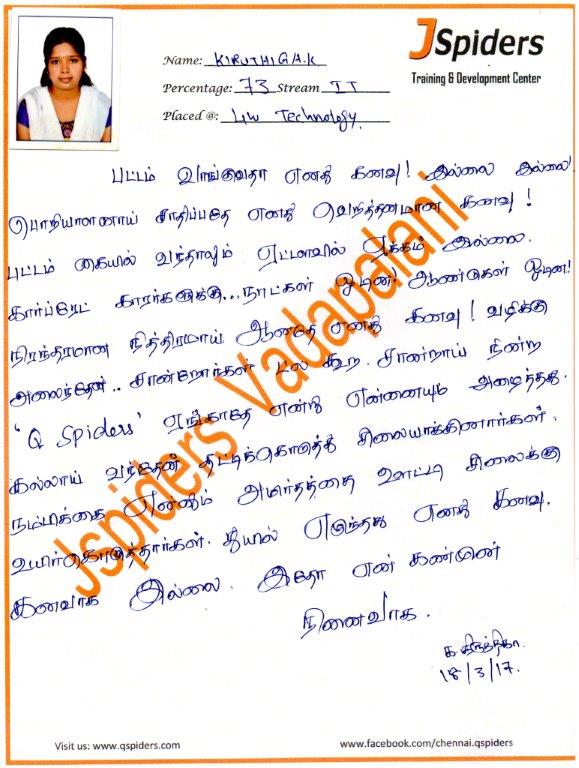 JSpiders
Training & Development Center
Name: KIRUTHIGA.K
Percentage: 73 Stream IT
Placed @: 4w Technology.
பட்டம் வாங்குவதா எனது கனவு! இல்லை இல்லை!
பொறியாளனாய் சாதிப்பதே எனது வெறித்தனமான கனவு!
பட்டம் கையில் வந்தாலும் ஏட்டளவில் ஏக்கம் இல்லை.
கார்ப்ரேட் காரர்களுக்கு...நாட்கள் ஓடின! ஆண்டுகள் ஓடின!
நிரந்தரமான நித்திரமாய் ஆனதே எனது கனவு! வழிக்கு
அலைந்தேன்.. சான்றோர்கள் பல கூற. சான்றாய் நின்ற
'Q Spiders' ஏங்காதே என்று என்னையும் அழைத்தது.
கல்லாய் வந்தேன் தட்டிக்கொடுத்து சிலையாக்கினார்கள்.
நம்பிக்கை எனும் அமிர்தத்தை ஊட்டி சிலைக்கு
உயிர்கொடுத்தார்கள். துயில் எழுந்தது எனது கனவு.
கனவாக இல்லை. இதோ என் கண்முன்
நினைவாக.
க.கிருத்திகா.
18/3/17.
Jspiders Vadapalani
Visit us: www.qspiders.com
www.facebook.com/chennai.qspiders